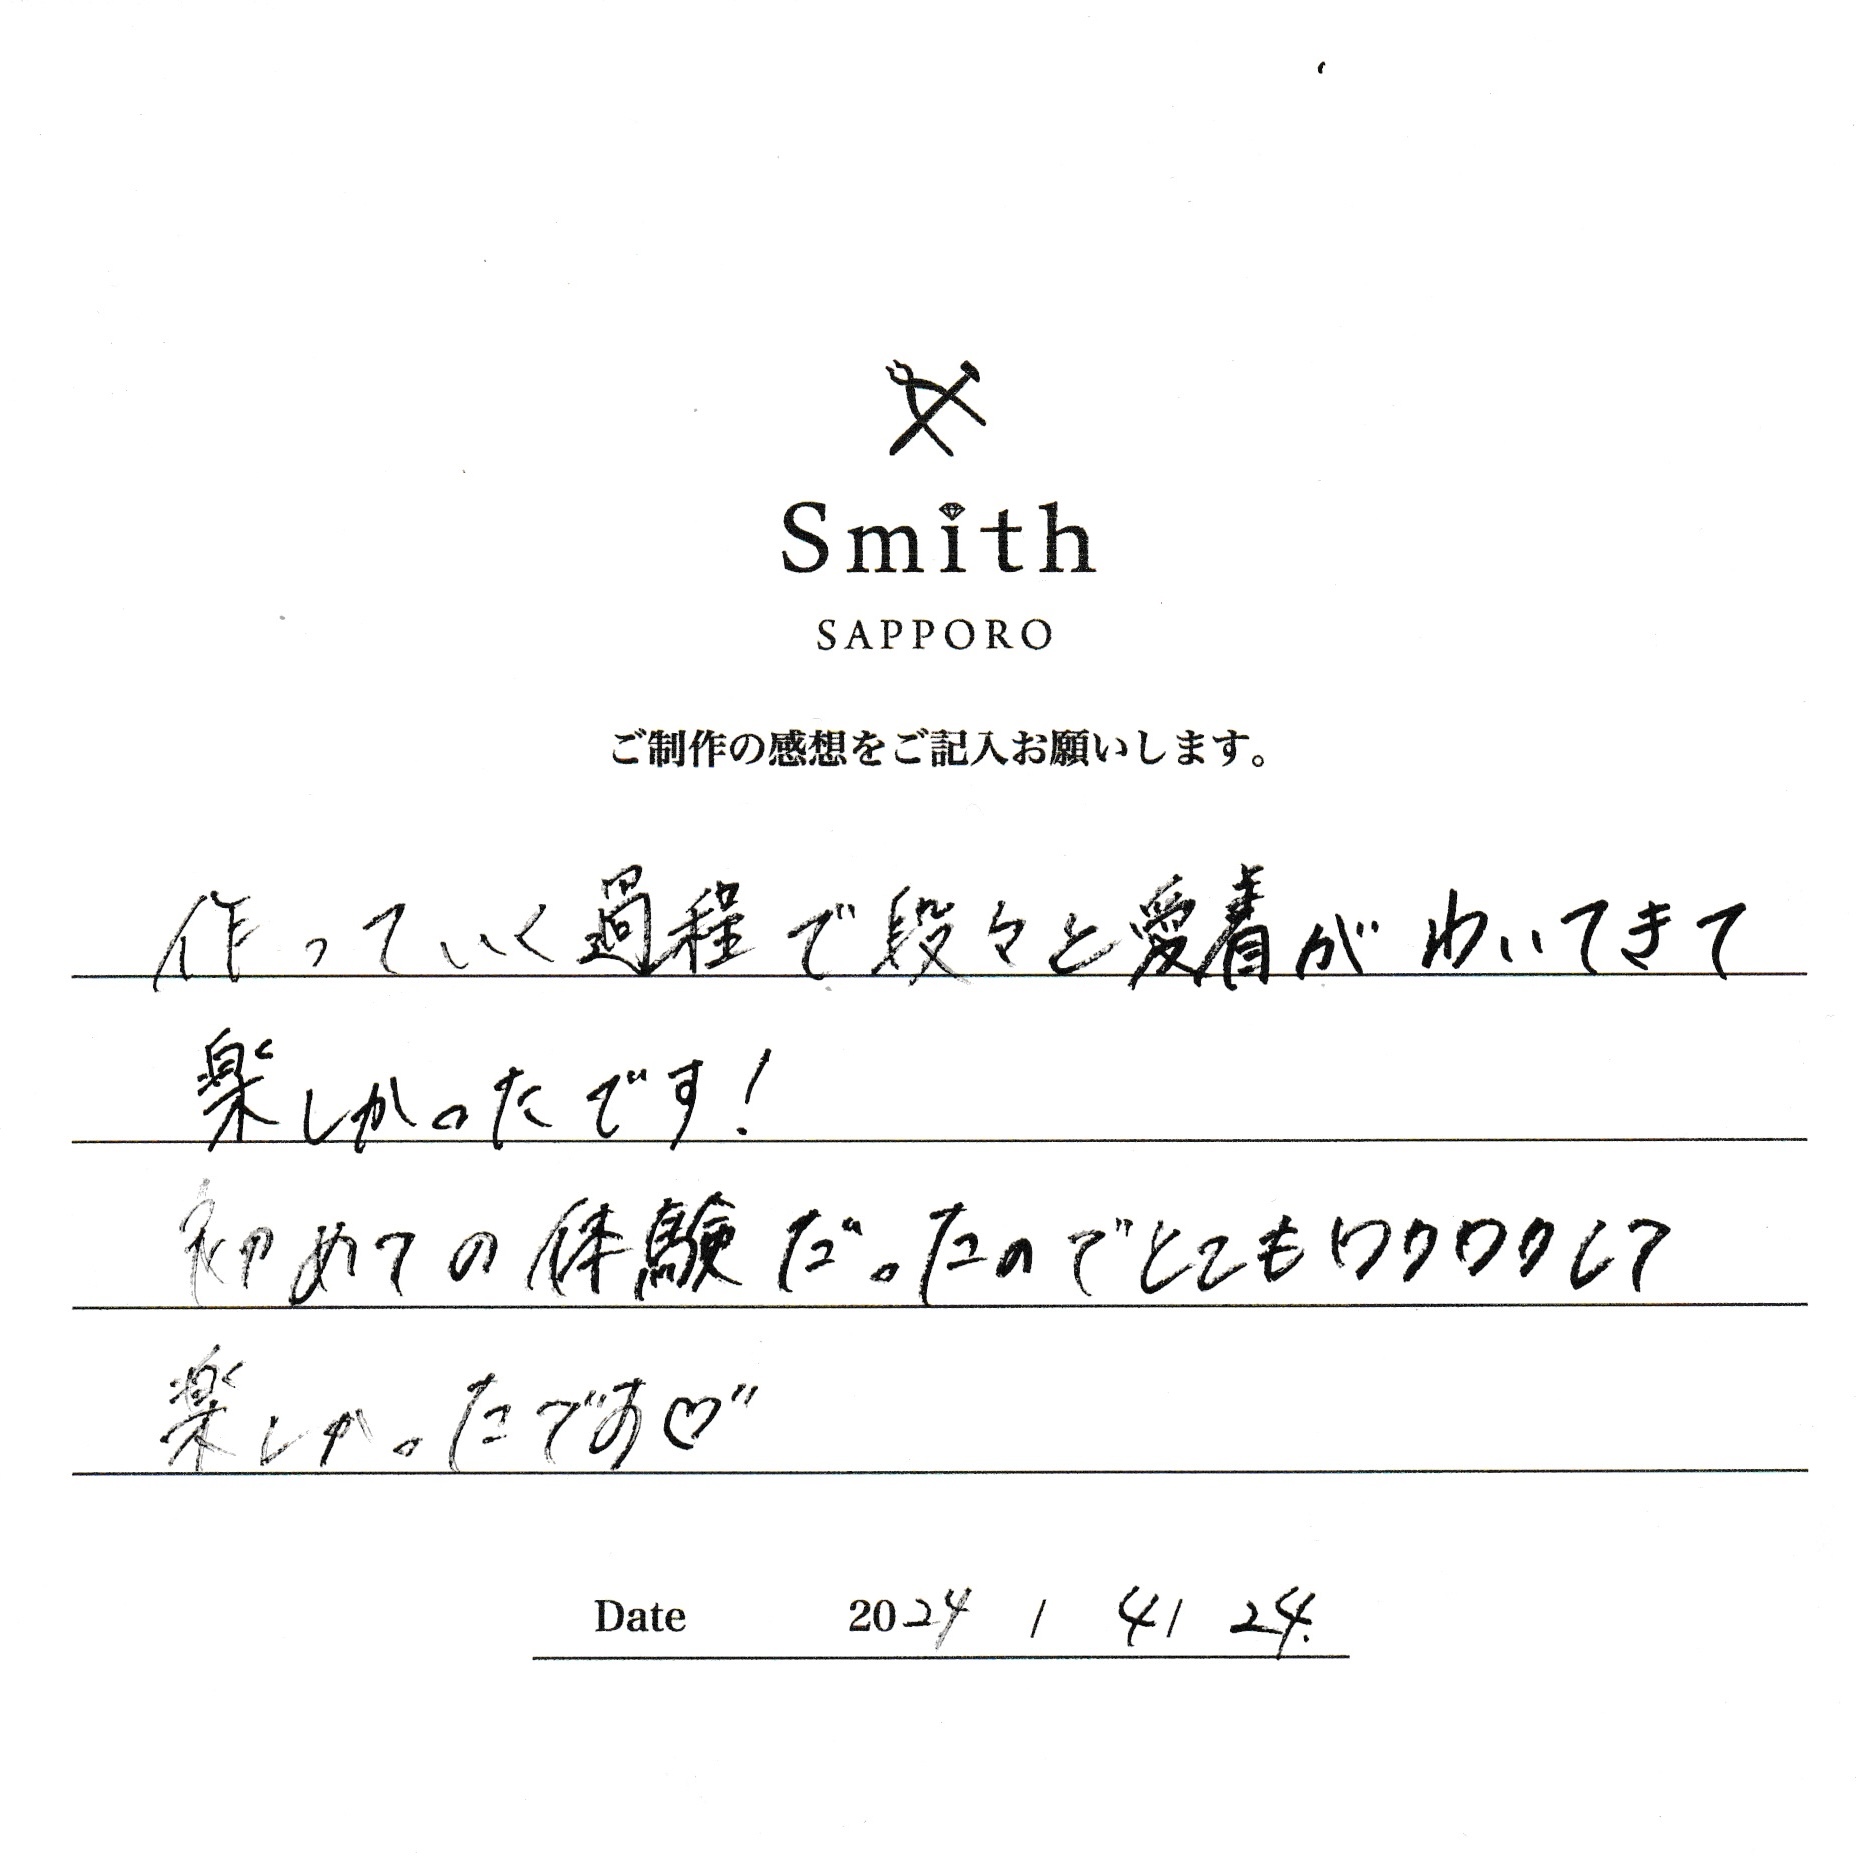 Smith
SAPPORO
ご制作の感想をご記入お願いします。
作っていく過程で段々と愛着がわいてきて
楽しかったです!
初めての体験だったのでとてもワクワクして
楽しかったです♡"
Date 2024 / 4/ 24.